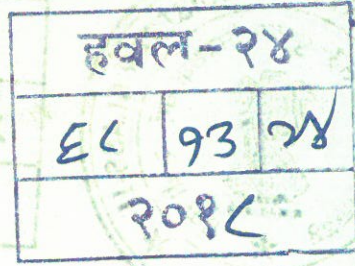 हवल-२४
६८ १३ २४
२०१८